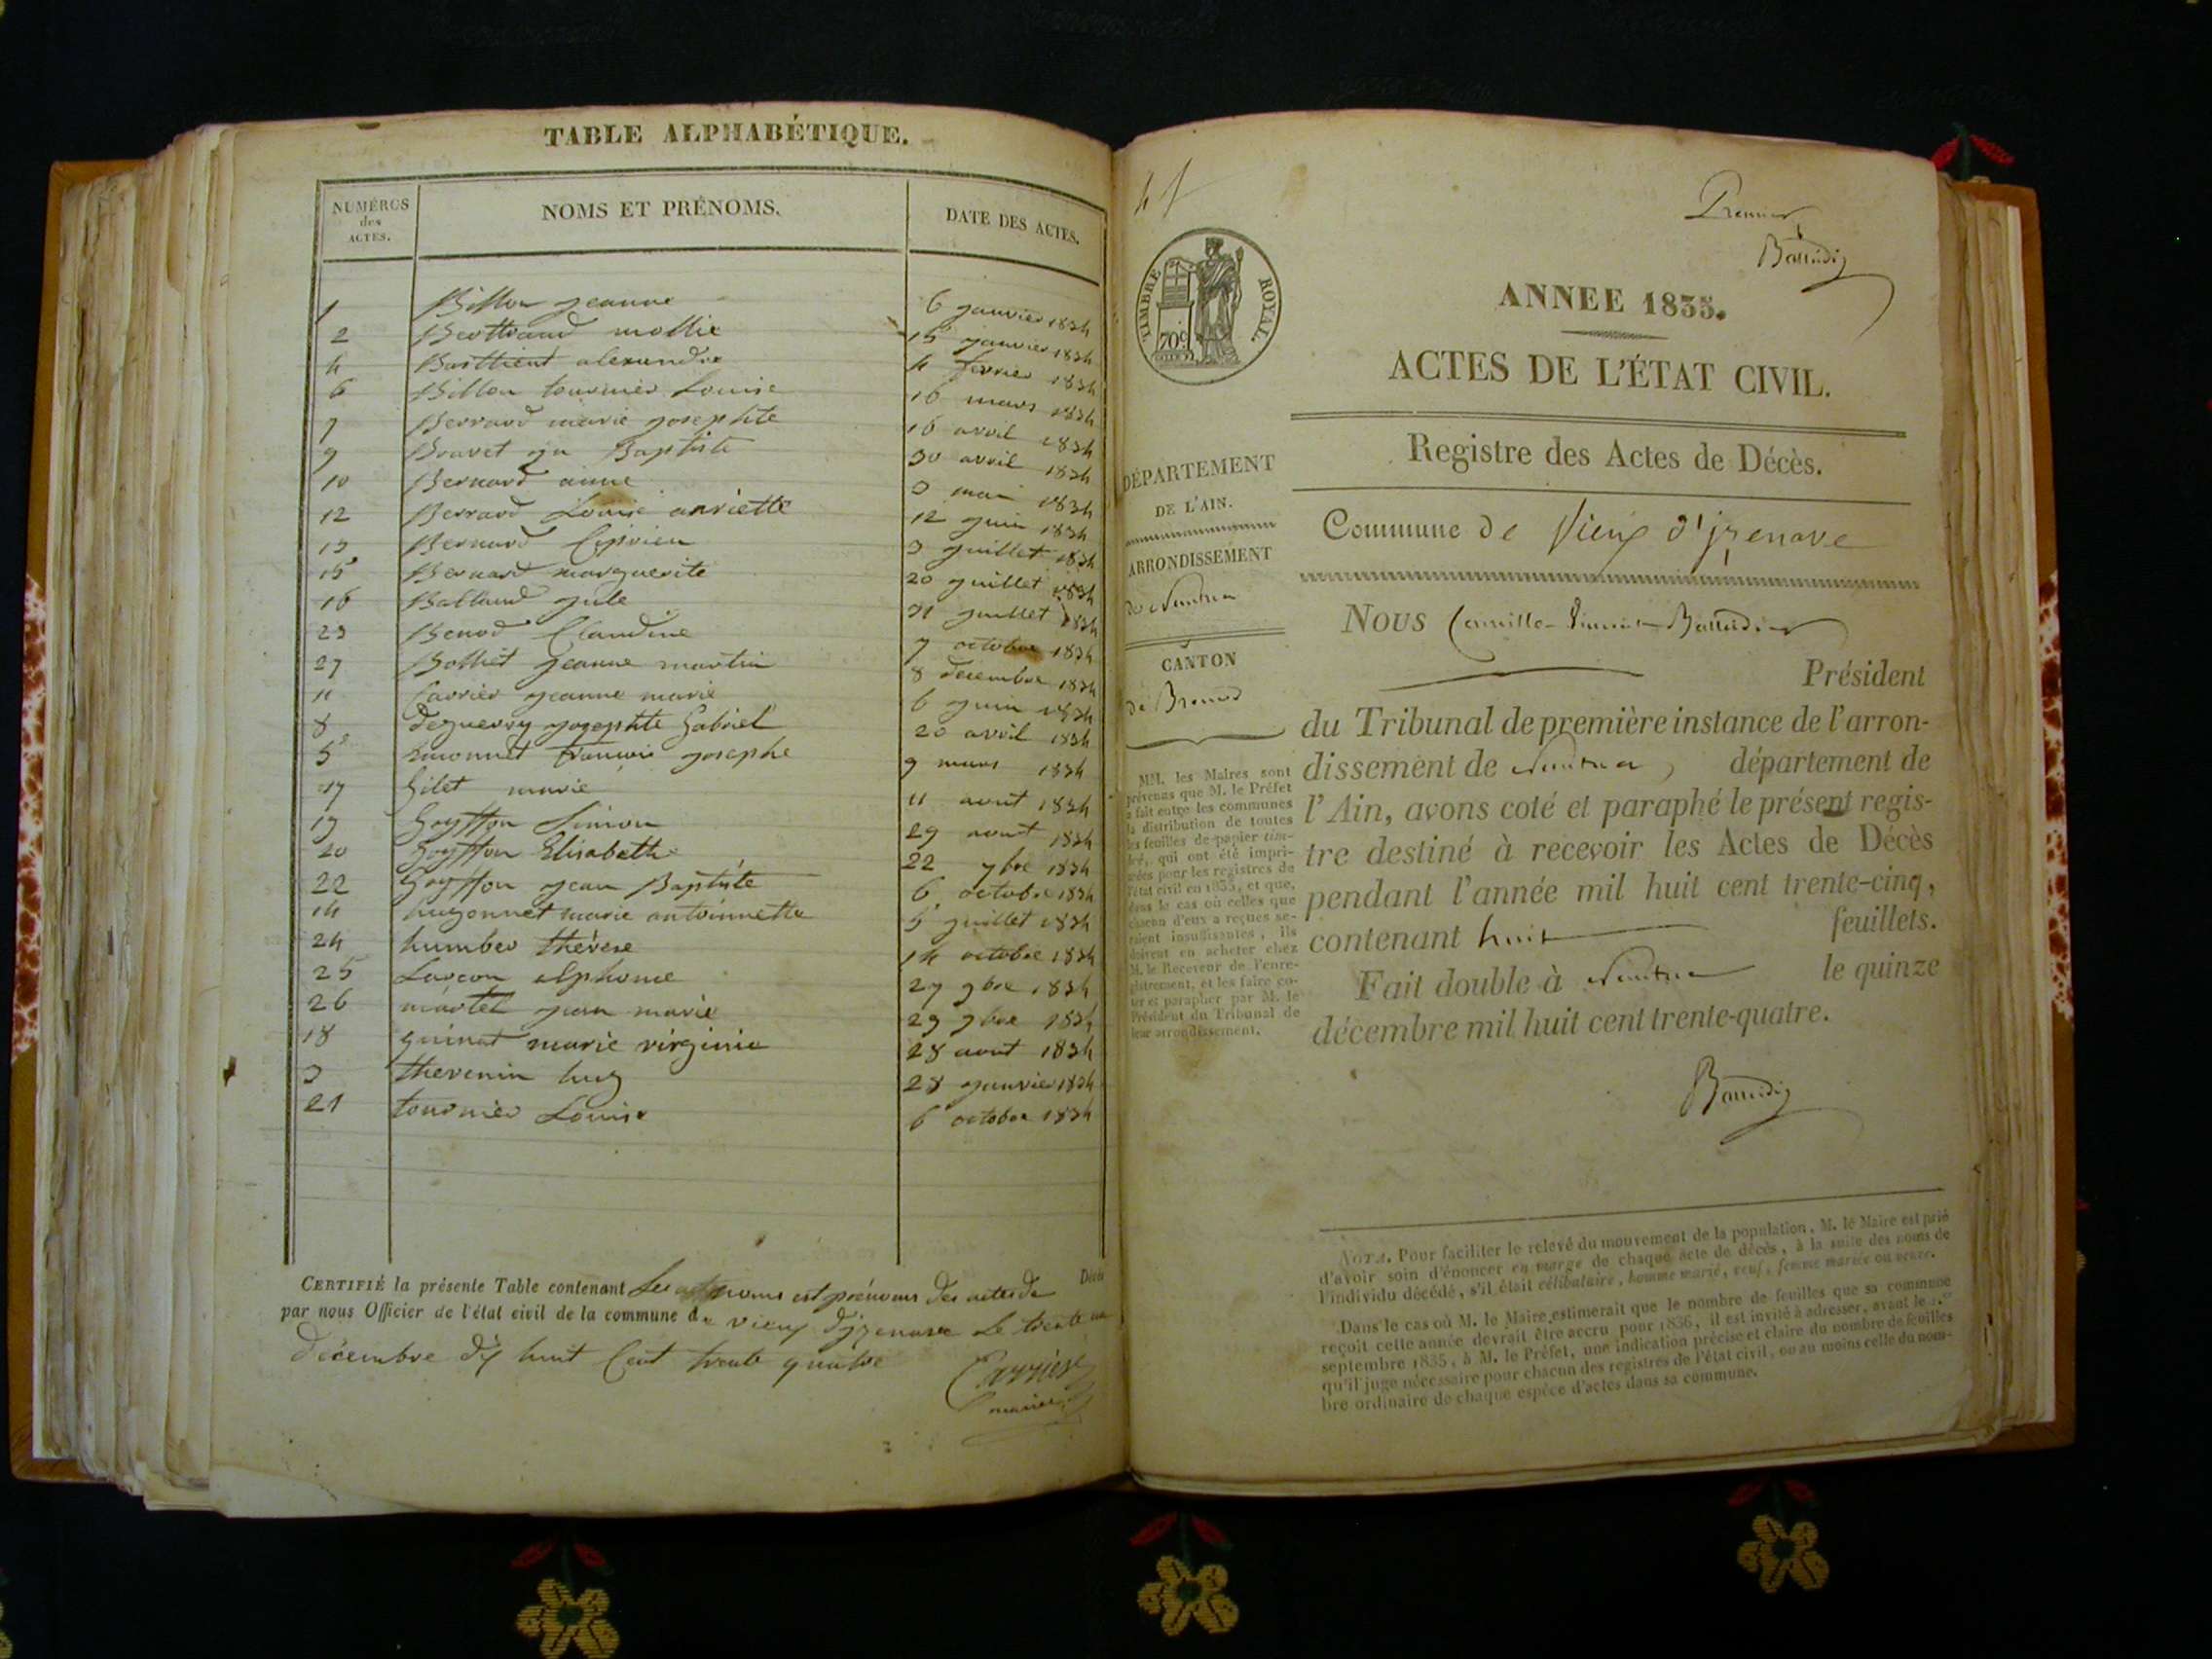 TABLE ALPHABÉTIQUE.
NUMÉROS des ACTES.
NOMS ET PRÉNOMS.
DATE DES ACTES.
1 Billon jeanne 6 janvier 1834
2 Berttrand mollie 15 janvier 1834
4 Barttient alexandre 4 fevrier 1834
6 Billon tournier Louise 16 mars 1834
7 Berrard marie josephte 16 avril 1834
9 Bouvet jn Baptiste 30 avril 1834
10 Bernard anne 3 mai 1834
12 Berrard Louise anriette 12 juin 1834
13 Bernard Ciprien 3 juillet 1834
15 Bernard marguerite 20 juillet 1834
16 Balland jule 31 juillet 1834
23 Benod Claudine 7 octobre 1834
27 Bolliet jeanne martin 8 decembre 1834
11 Carrier jeanne marie 6 juin 1834
8 deguerry josephte Gabriel 20 avril 1834
5 françois josephe 9 mars 1834
17 Gilet marie 11 août 1834
19 Goyffon Simon 29 aout 1834
20 Goyffon Elisabeth 22 7bre 1834
22 Goyffon jean Baptiste 6 octobre 1834
14 hugonnet marie antoinnette 5 juillet 1834
24 humber thérese 14 octobre 1834
25 Lascon alphonse 27 9bre 1834
26 martel jean marie 29 9bre 1834
18 guinet marie virginie 28 aout 1834
3 thevenin huz 28 janvier 1834
21 tournier Louise 6 octobre 1834
CERTIFIÉ la présente Table contenant Les noms est prénoms des actes de Décès
par nous Officier de l'état civil de la commune de vieux d'izenave Le trente un
décembre dix huit Cent trente quatre
Carrier
maire
Premier
Baudin
TIMBRE ROYAL
70c
ANNEE 1835.
ACTES DE L'ÉTAT CIVIL.
Registre des Actes de Décès.
DÉPARTEMENT
DE L'AIN.
ARRONDISSEMENT
de Nantua
CANTON
de Brenod
MM. les Maires sont
prévenus que M. le Préfet
a fait entre les communes
la distribution de toutes
les feuilles de papier tim-
bré, qui ont été impri-
mées pour les registres de
l'état civil en 1835, et que,
dans le cas où celles que
chacun d'eux a reçues se-
raient insuffisantes, ils
doivent en acheter chez
M. le Receveur de l'enre-
gistrement, et les faire co-
ter et parapher par M. le
Président du Tribunal de
leur arrondissement.
Commune de Vieux d'izenave
NOUS Camille
Président
du Tribunal de première instance de l'arron-
dissement de Nantua, département de
l'Ain, avons coté et paraphé le présent regis-
tre destiné à recevoir les Actes de Décès
pendant l'année mil huit cent trente-cinq,
contenant huit feuillets.
Fait double à Nantua le quinze
décembre mil huit cent trente-quatre.
NOTA. Pour faciliter le relevé du mouvement de la population, M. le Maire est prié
d'avoir soin d'énoncer en marge de chaque acte de décès, à la suite des noms de
l'individu décédé, s'il était célibataire, homme marié, veuf, femme mariée ou veuve.
Dans le cas où M. le Maire estimerait que le nombre de feuilles que sa commune
reçoit cette année devrait être accru pour 1836, il est invité à adresser, avant le 1.er
septembre 1835, à M. le Préfet, une indication précise et claire du nombre de feuilles
qu'il juge nécessaire pour chacun des registres de l'état civil, ou au moins celle du nom-
bre ordinaire de chaque espèce d'actes dans sa commune.